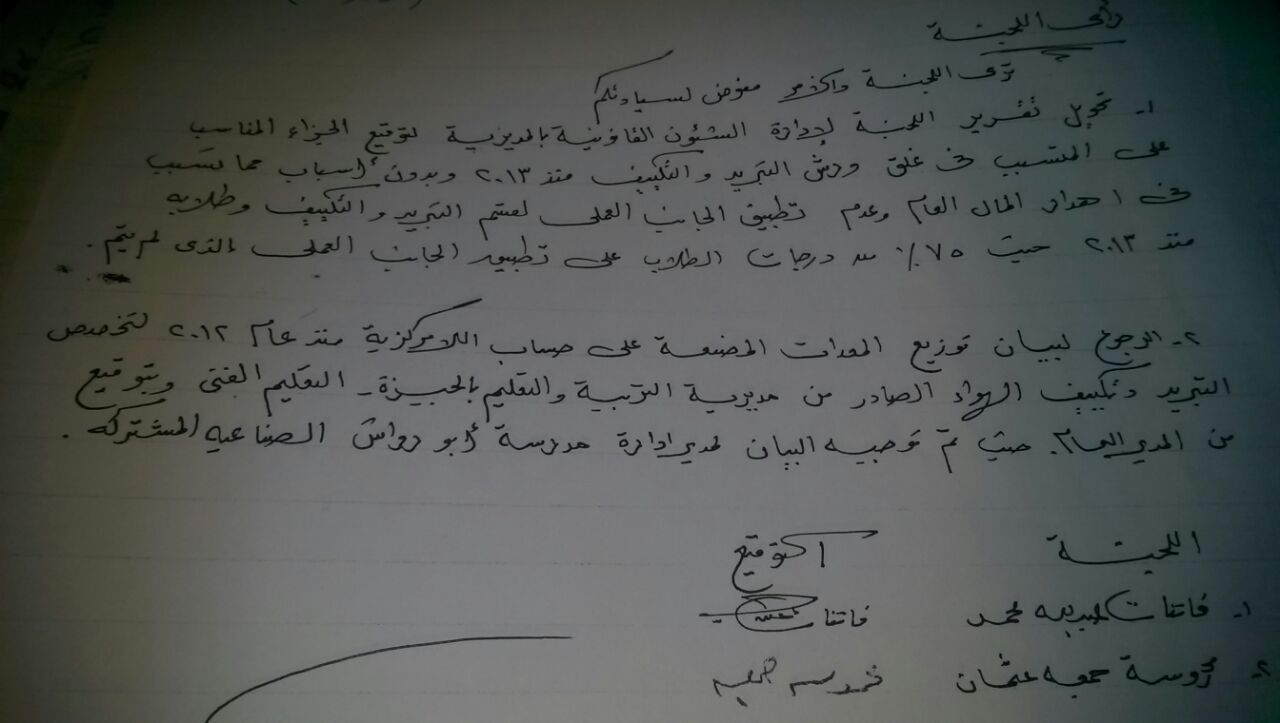 رأى اللجنة
ترى اللجنة والأمر مفوض لسيادتكم
١- تحويل تقرير اللجنة لإدارة الشئون القانونية بالمديرية لتوقيع الجزاء المناسب
على المتسبب فى غلق ورش التبريد والتكييف منذ ٢٠١٣ وبدون أسباب مما تسبب
فى اهدار المال العام وعدم تطبيق الجانب العملى لقسم التبريد والتكييف وطلابه
منذ ٢٠١٣ حيث ٧٥٪ من درجات الطلاب على تطبيق الجانب العملى الذى لم يتم.
٢- الرجوع لبيان توزيع المعدات المصنعة على حساب اللامركزية منذ عام ٢٠١٢ لتخصص
التبريد وتكييف الهواء الصادر من مديرية التربية والتعليم بالجيزة - التعليم الفنى وبتوقيع
من المدير العام. حيث تم توجيه البيان لمدير ادارة مدرسة أبو رواش الصناعيه المشتركه.
اللجنة التوقيع
١- فاتنات محمد فاتنات
٢- محروسة جمعه عثمان